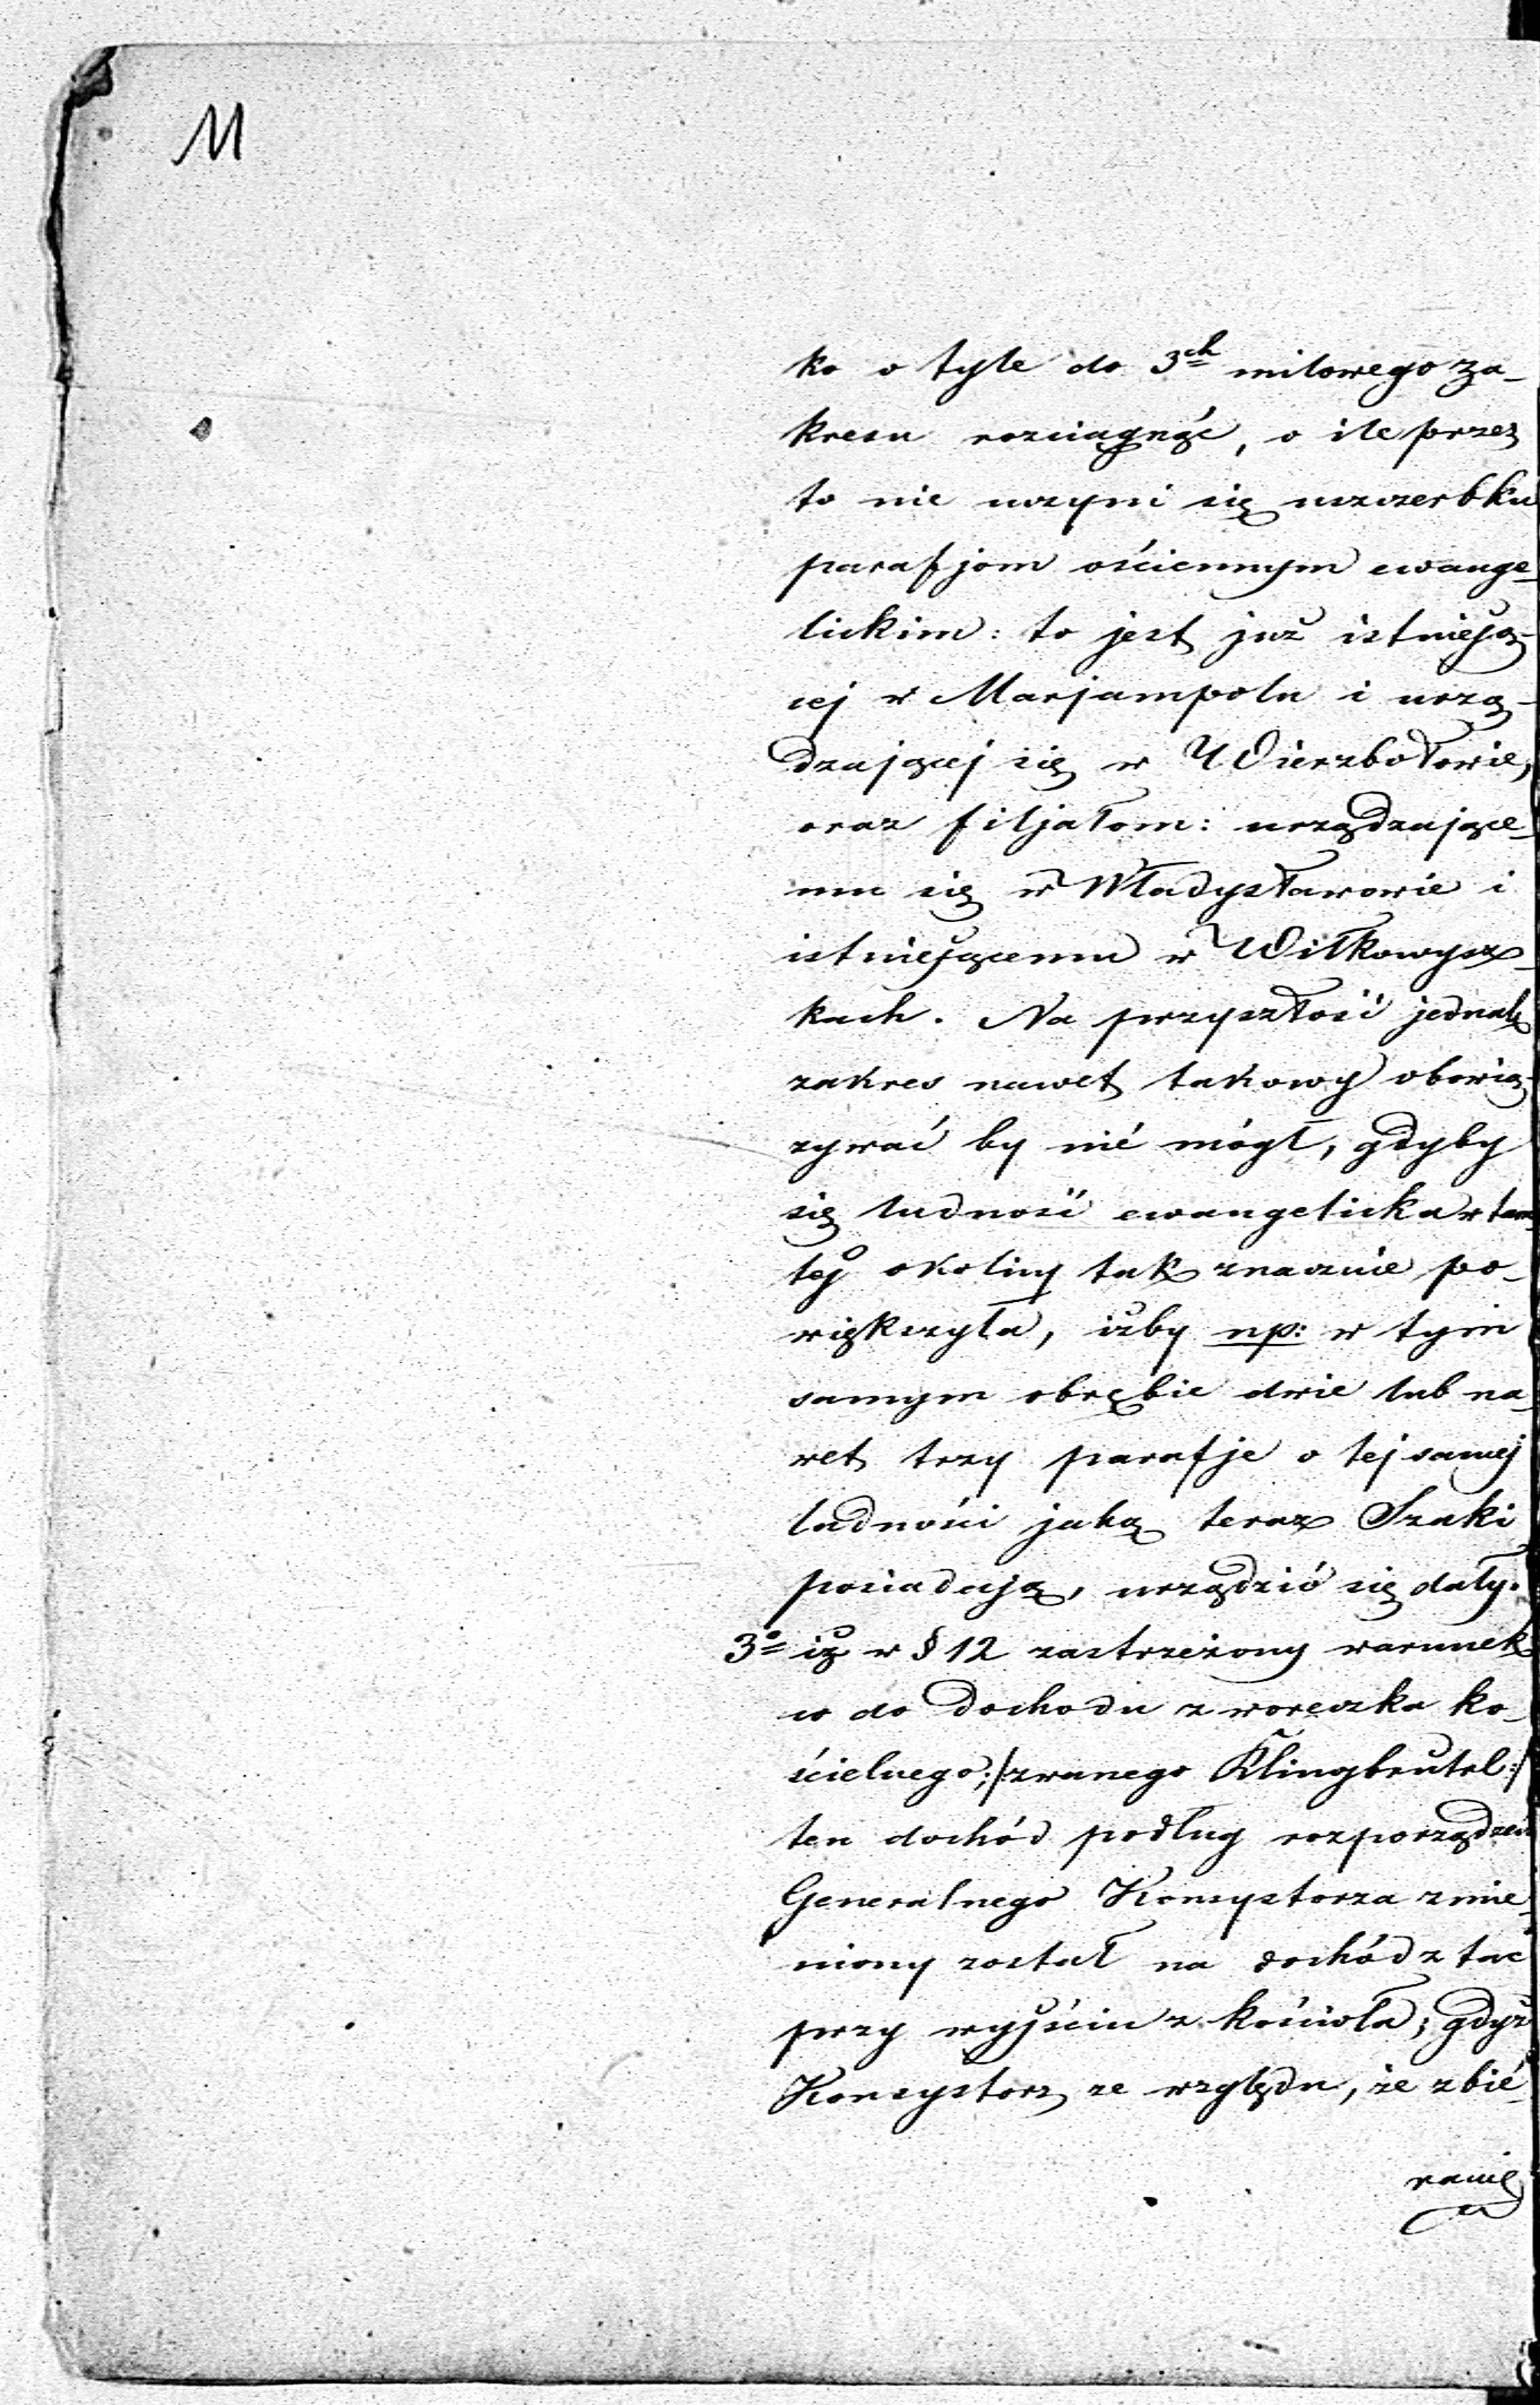 11
ko o tyle do 3ch milowego za-
kresu rozciągnąć, o ile przez
to nie uczyni się uszczerbku
parafjom ościennym ewange-
lickim: to jest już istnieją-
cej w Marjampolu i urzą-
dzającej się w Wierzbołowie,
oraz filjałom: urządzające-
mu się w Władysławowie i
istniejącemu w Wiłkowysz-
kach. Na przyszłość jednak
zakres nawet takowy obowią-
zywać by nié mógł, gdyby
się ludność ewangelicka w tam-
tej okolicy tak znacznie po-
większyła, iżby np: w tym
samym obrębie dwie lub na-
wet trzy parafje o tej samej
ludności jaką teraz Szaki
posiadają, urządzić się dały.
3o iż w § 12 zastrzeżony warunek
co do dochodu z woreczka ko-
ścielnego; /:zwanego Klingbeutel:/
ten dochód podług rozporządzeń
Generalnego Konsystorza zmie-
niony został na dochód z tac
przy wyjściu z kościoła; gdyż
Konsystorz ze względu, że zbié-
ranie